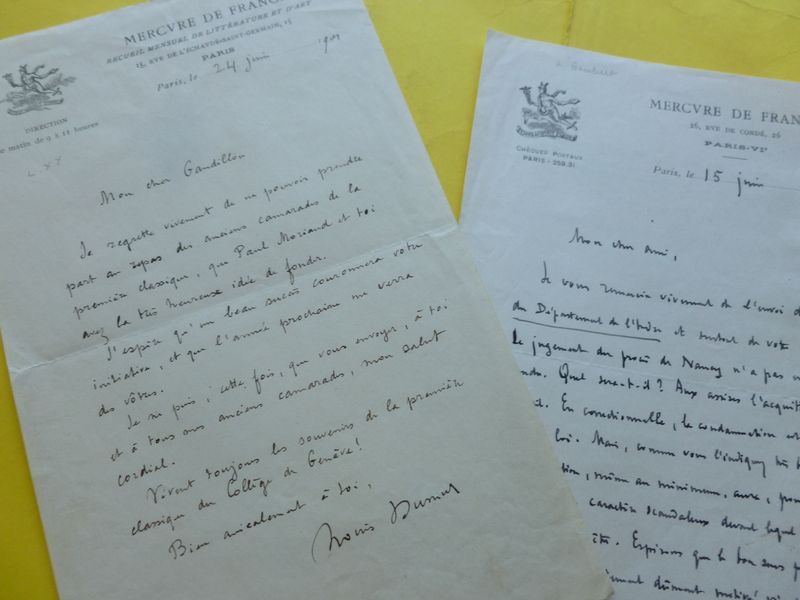 MERCVRE DE FRANC
RECUEIL MENSUEL DE LITTÉRATURE ET D'ART
15, RVE DE L'ÉCHAVDÉ-SAINT-GERMAIN, 15
PARIS
Paris, le 24 juin
DIRECTION
e matin de 9 à 11 heures
Mon cher Gandillon
Je regrette vivement de ne pouvoir prendre
part au repas des anciens camarades de la
première classique, que Paul Moriaud et toi
avez la très heureuse idée de fonder.
J'espère qu'un beau succès couronnera votre
initiative, et que l'année prochaine me verra
des vôtres.
Je ne puis, cette fois, que vous envoyer, à toi
et à tous nos anciens camarades, mon salut
cordial.
Vivent toujours les souvenirs de la première
classique du Collège de Genève!
Bien amicalement à toi,
Louis Dumur
MERCVRE DE FRAN
26, RVE DE CONDÉ, 26
PARIS-VIᵉ
CHÈQUES POSTAUX
PARIS - 259.31
Paris, le 15 juin
Mon cher ami,
Je vous remercie vivement de l'envoi d
du Département de l'Isère et surtout de votr
Le jugement du procès de Nancy n'a pas
Quel sera-t-il? Aux assises l'acquit
il. En correctionnelle, la condamnation est
loi. Mais, comme vous l'indiquez
tion, même au minimum, aura, pour
caractère scandaleux devant lequel
Espérons que le bon sens
dûment motivé